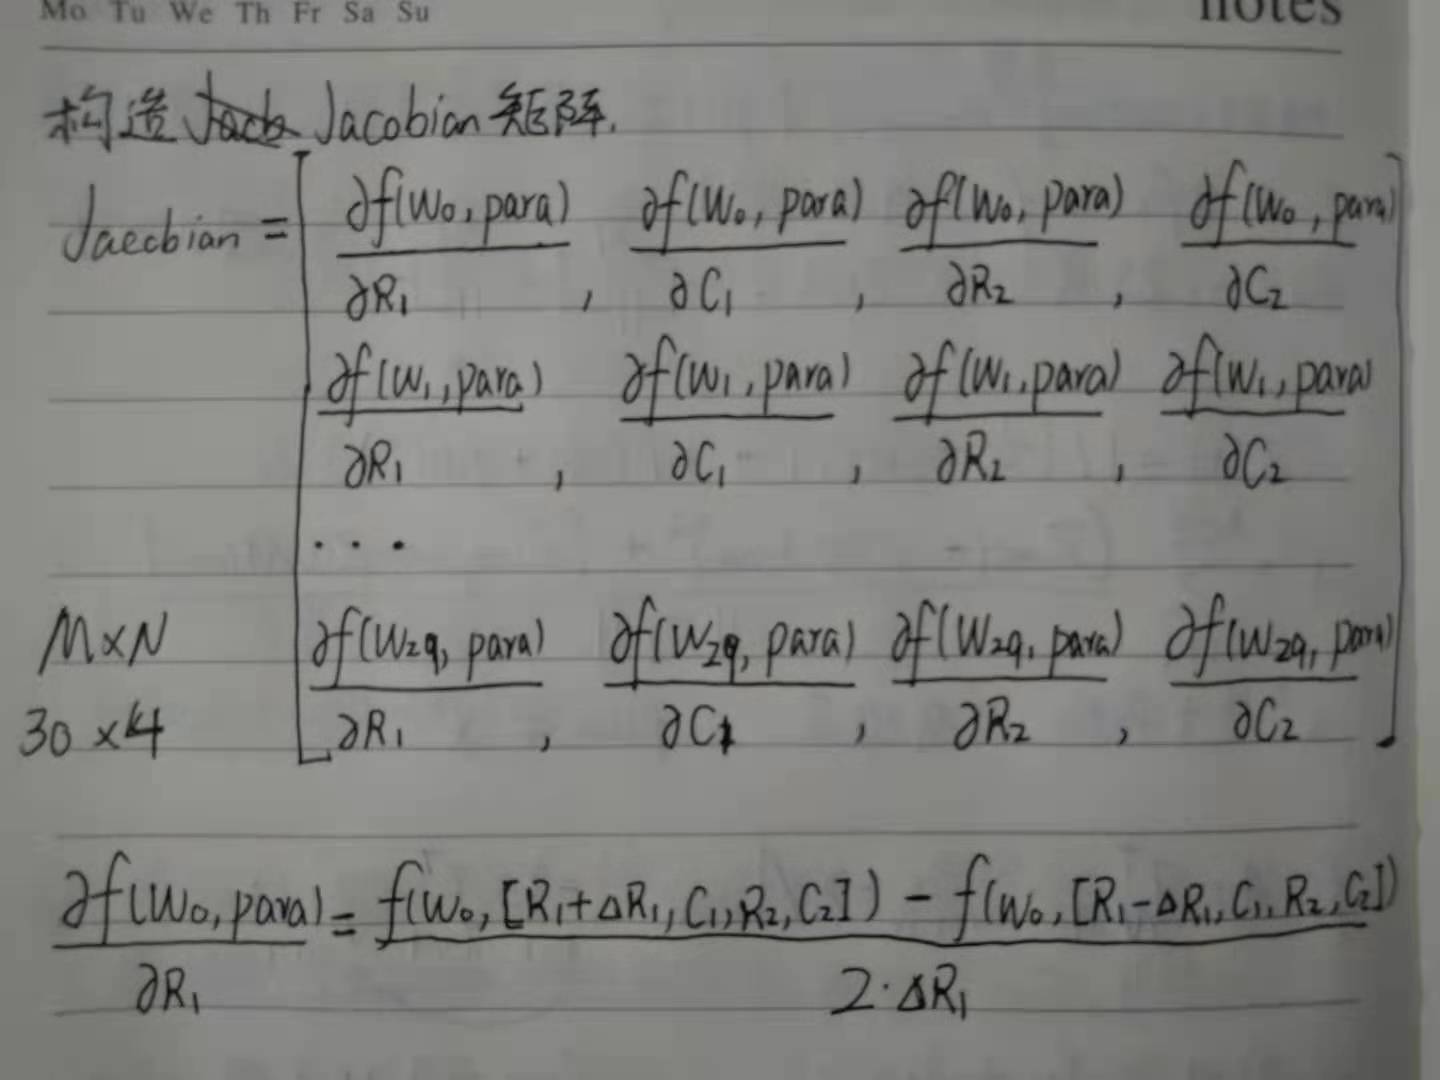 Mo Tu We Th Fr Sa Su notes
构造 Jacobian 矩阵.
Jaecbian = [ ∂f(w₀, para)/∂R₁ , ∂f(w₀, para)/∂C₁ , ∂f(w₀, para)/∂R₂ , ∂f(w₀, para)/∂C₂
∂f(w₁, para)/∂R₁ , ∂f(w₁, para)/∂C₁ , ∂f(w₁, para)/∂R₂ , ∂f(w₁, para)/∂C₂
...
M×N ∂f(w₂₉, para)/∂R₁ , ∂f(w₂₉, para)/∂C₁ , ∂f(w₂₉, para)/∂R₂ , ∂f(w₂₉, para)/∂C₂ ]
30×4
∂f(w₀, para)/∂R₁ = (f(w₀, [R₁+ΔR₁, C₁, R₂, C₂]) − f(w₀, [R₁−ΔR₁, C₁, R₂, C₂]))/(2·ΔR₁)